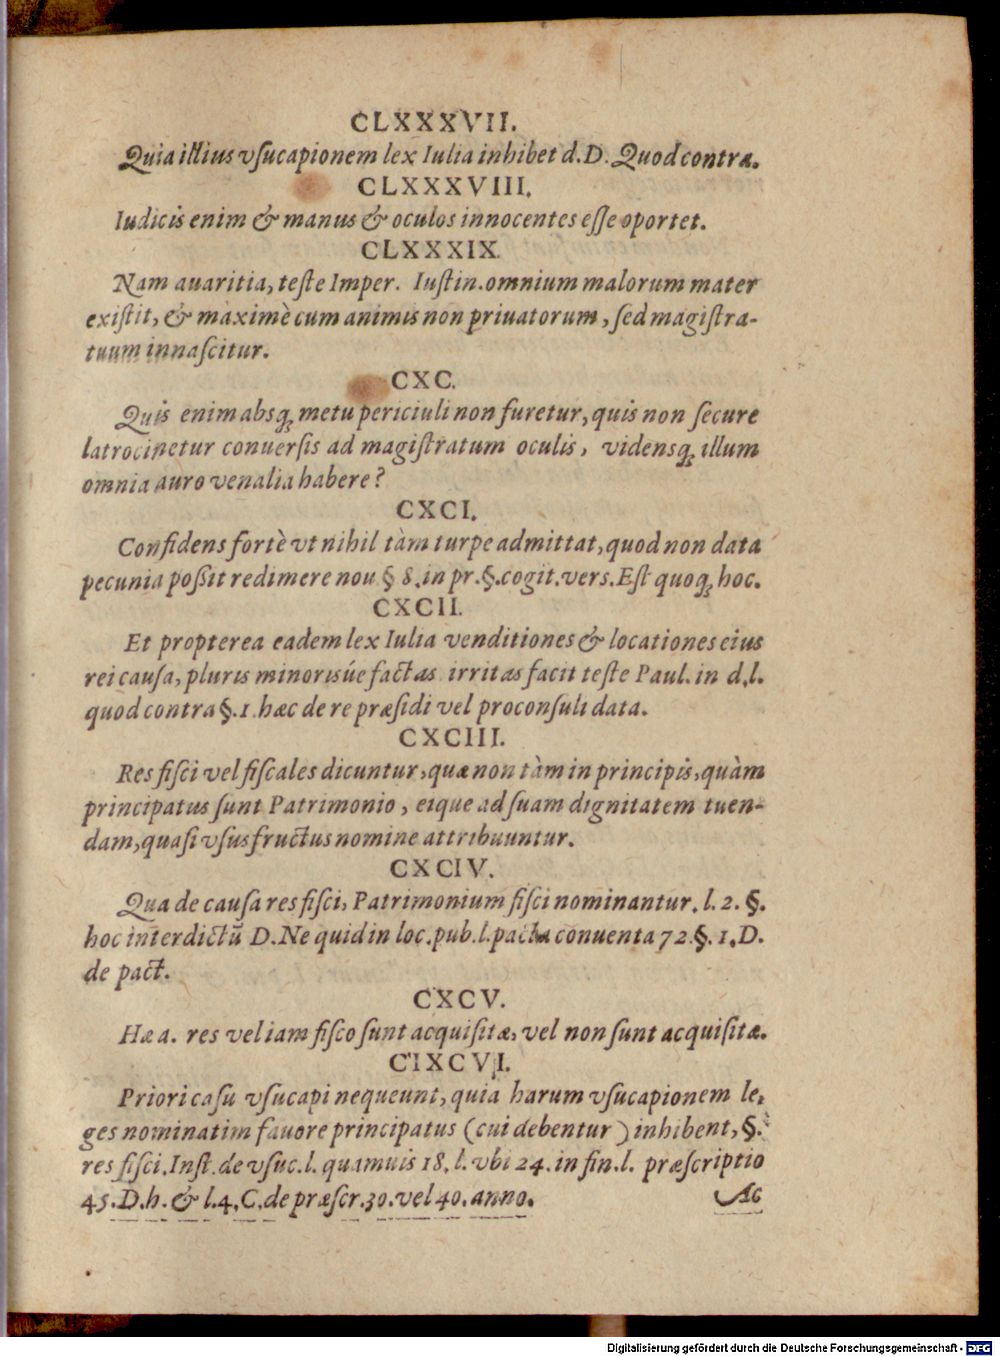 CLXXXVII.
Quia illius vſucapionem lex Iulia inhibet d. D. Quod contra.
CLXXXVIII.
Iudicis enim & manus & oculos innocentes eſſe oportet.
CLXXXIX.
Nam auaritia, teſte Imper. Iuſtin. omnium malorum mater
exiſtit, & maximè cum animis non priuatorum, ſed magiſtra-
tuum innaſcitur.
CXC.
Quis enim absq; metu periciuli non furetur, quis non ſecure
latrocinetur conuerſis ad magiſtratum oculis, vidensq; illum
omnia auro venalia habere?
CXCI.
Confidens fortè vt nihil tàm turpe admittat, quod non data
pecunia poßit redimere nou § 8. in pr. §. cogit. vers. Eſt quoq; hoc.
CXCII.
Et propterea eadem lex Iulia venditiones & locationes eius
rei cauſa, pluris minorisúe factas irritas facit teſte Paul. in d. l.
quod contra §. 1. hæc de re præſidi vel proconſuli data.
CXCIII.
Res fiſci vel fiſcales dicuntur, quæ non tàm in principis, quàm
principatus ſunt Patrimonio, eique ad ſuam dignitatem tuen-
dam, quaſi vſusfructus nomine attribuuntur.
CXCIV.
Qua de cauſa res fiſci, Patrimonium fiſci nominantur. l. 2. §.
hoc interdictū D. Ne quid in loc. pub. l. pacta conuenta 72. §. 1. D.
de pact.
CXCV.
Hæ a. res vel iam fiſco ſunt acquiſitæ, vel non ſunt acquiſitæ.
CIXCVI.
Priori caſu vſucapi nequeunt, quia harum vſucapionem le-
ges nominatim fauore principatus (cui debentur) inhibent, §.
res fiſci. Inſt. de vſuc. l. quamuis 18. l. vbi 24. in fin. l. præſcriptio
45. D. h. & l. 4. C. de præſcr. 30. vel 40. anno.
Ac
Digitalisierung gefördert durch die Deutsche Forschungsgemeinschaft - DFG